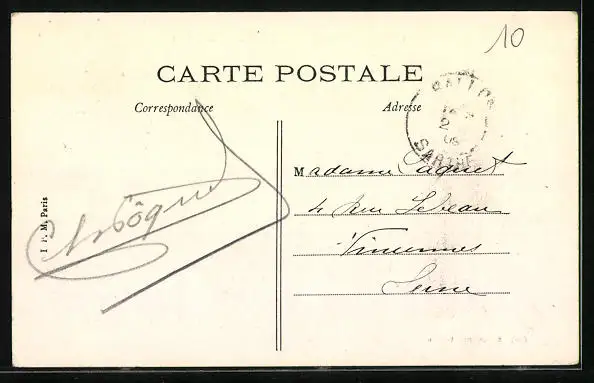 10
CARTE POSTALE
Correspondance
Adresse
BALLON
2
08
SARTHE
Madame Paquet
4 Rue
Vincennes
Seine
I P. M. Paris